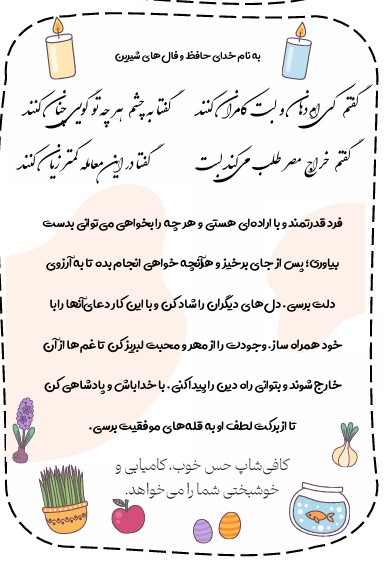 به نام خدای حافظ و فال های شیرین
گفتم کی ام دهان و لبت کامران کنند گفتا به چشم هر چه تو گویی چنان کنند
گفتم خراج مصر طلب می‌کند لبت گفتا در این معامله کمتر زیان کنند
فرد قدرتمند و با اراده‌ای هستی و هر چه را بخواهی می‌توانی بدست
بیاوری؛ پس از جای برخیز و هرآنچه خواهی انجام بده تا به آرزوی
دلت برسی. دل‌های دیگران را شاد کن و با این کار دعای آنها را با
خود همراه ساز. وجودت را از مهر و محبت لبریز کن تا غم‌ها از آن
خارج شوند و بتوانی راه دین را پیدا کنی. با خدا باش و پادشاهی کن
تا از برکت لطف او به قله‌های موفقیت برسی.
کافی‌شاپ حس خوب، کامیابی و
خوشبختی شما را می‌خواهد.